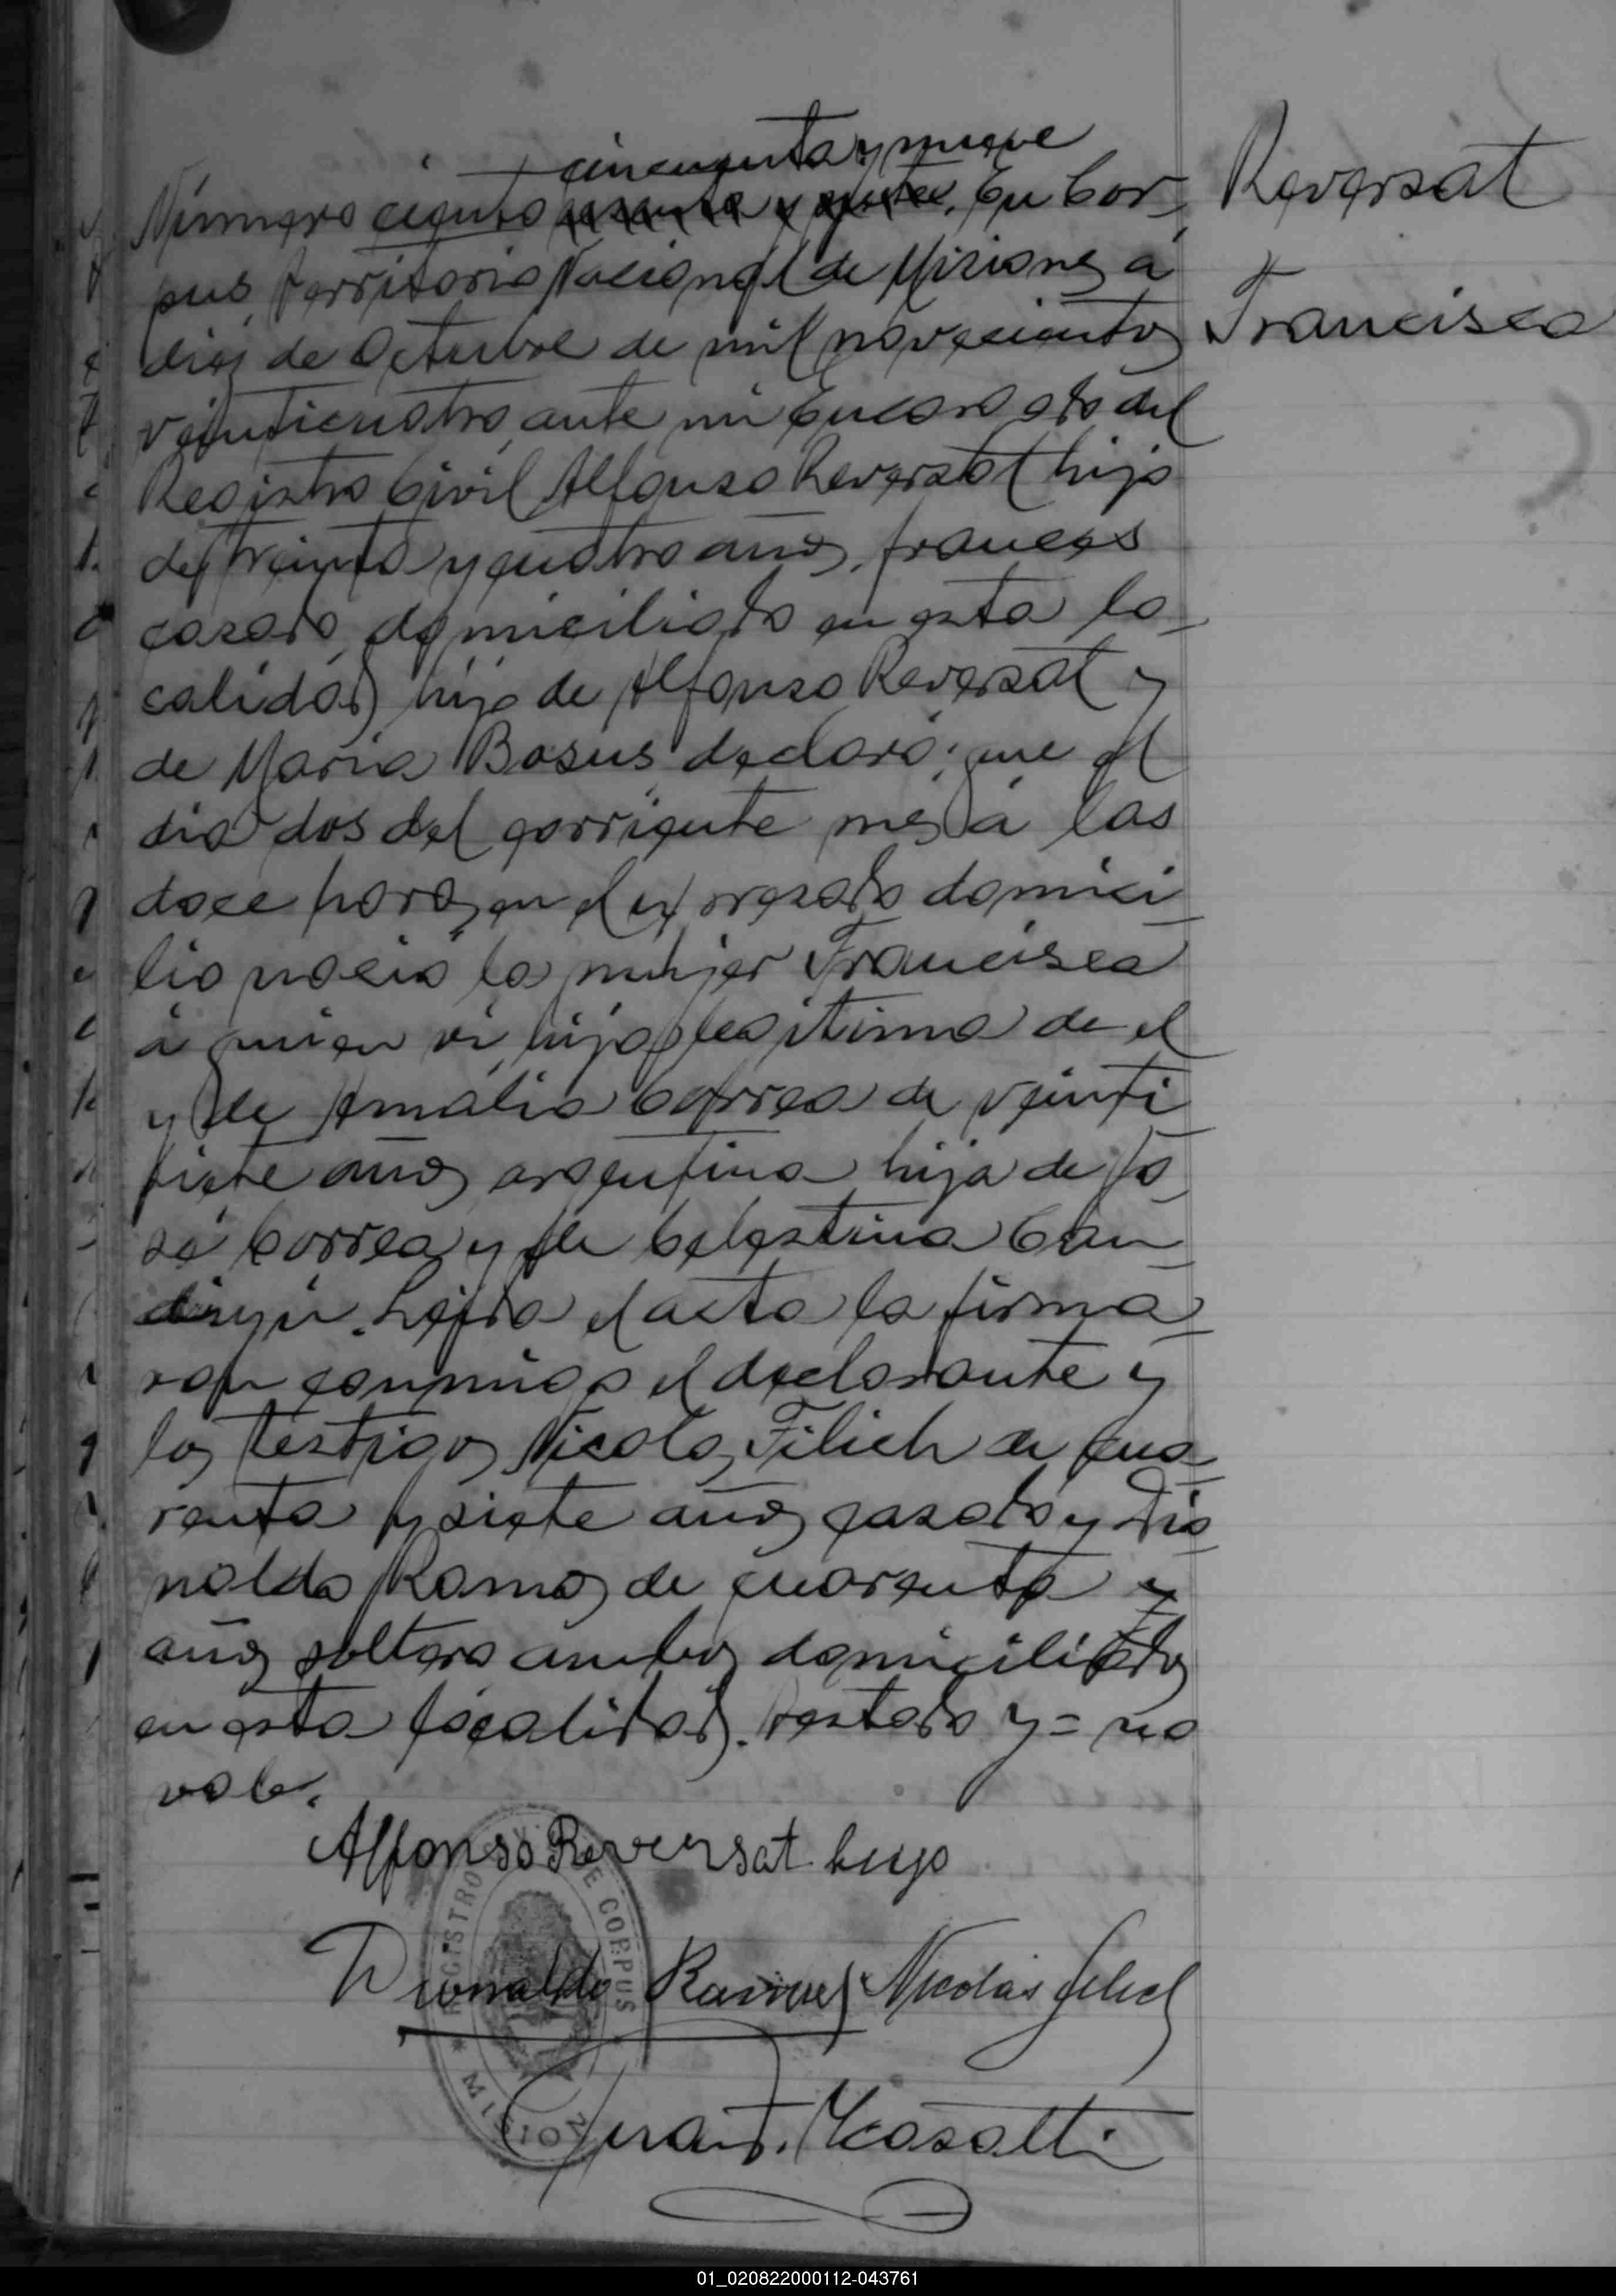 cincuenta y nueve
Número ciento sesenta y siete. En Cor-
pus, Territorio Nacional de Misiones á
diez de Octubre de mil novecientos
veinticuatro, ante mi Encargado del
Registro Civil Alfonso Reversat (hijo
de treinta y cuatro años, frances
casado, domiciliado en esta lo-
calidad, hijo de Alfonso Reversat y
de Maria Basus declaró: que el
dia dos del corriente mes á las
doce horas en el expresado domici-
lio nació la mujer Francisca
á quien vi, hija legitima de el
y de Amalia Correa de veinti
siete años argentina hija de Jo-
sé Correa y de Celestina Can-
diryu. Leida el acta la firma-
ron conmigo el declarante y
los testigos Nicolas Filich de cua-
renta y siete años casado y Dio-
naldo Ramos de cuarenta y
años soltero ambos domiciliados
en esta localidad. Testado y = no
vale.
Reversat
Francisca
Alfonso Reversat hijo
Nicolás Filich
REGISTRO CORPUS
MISION
01_020822000112-043761